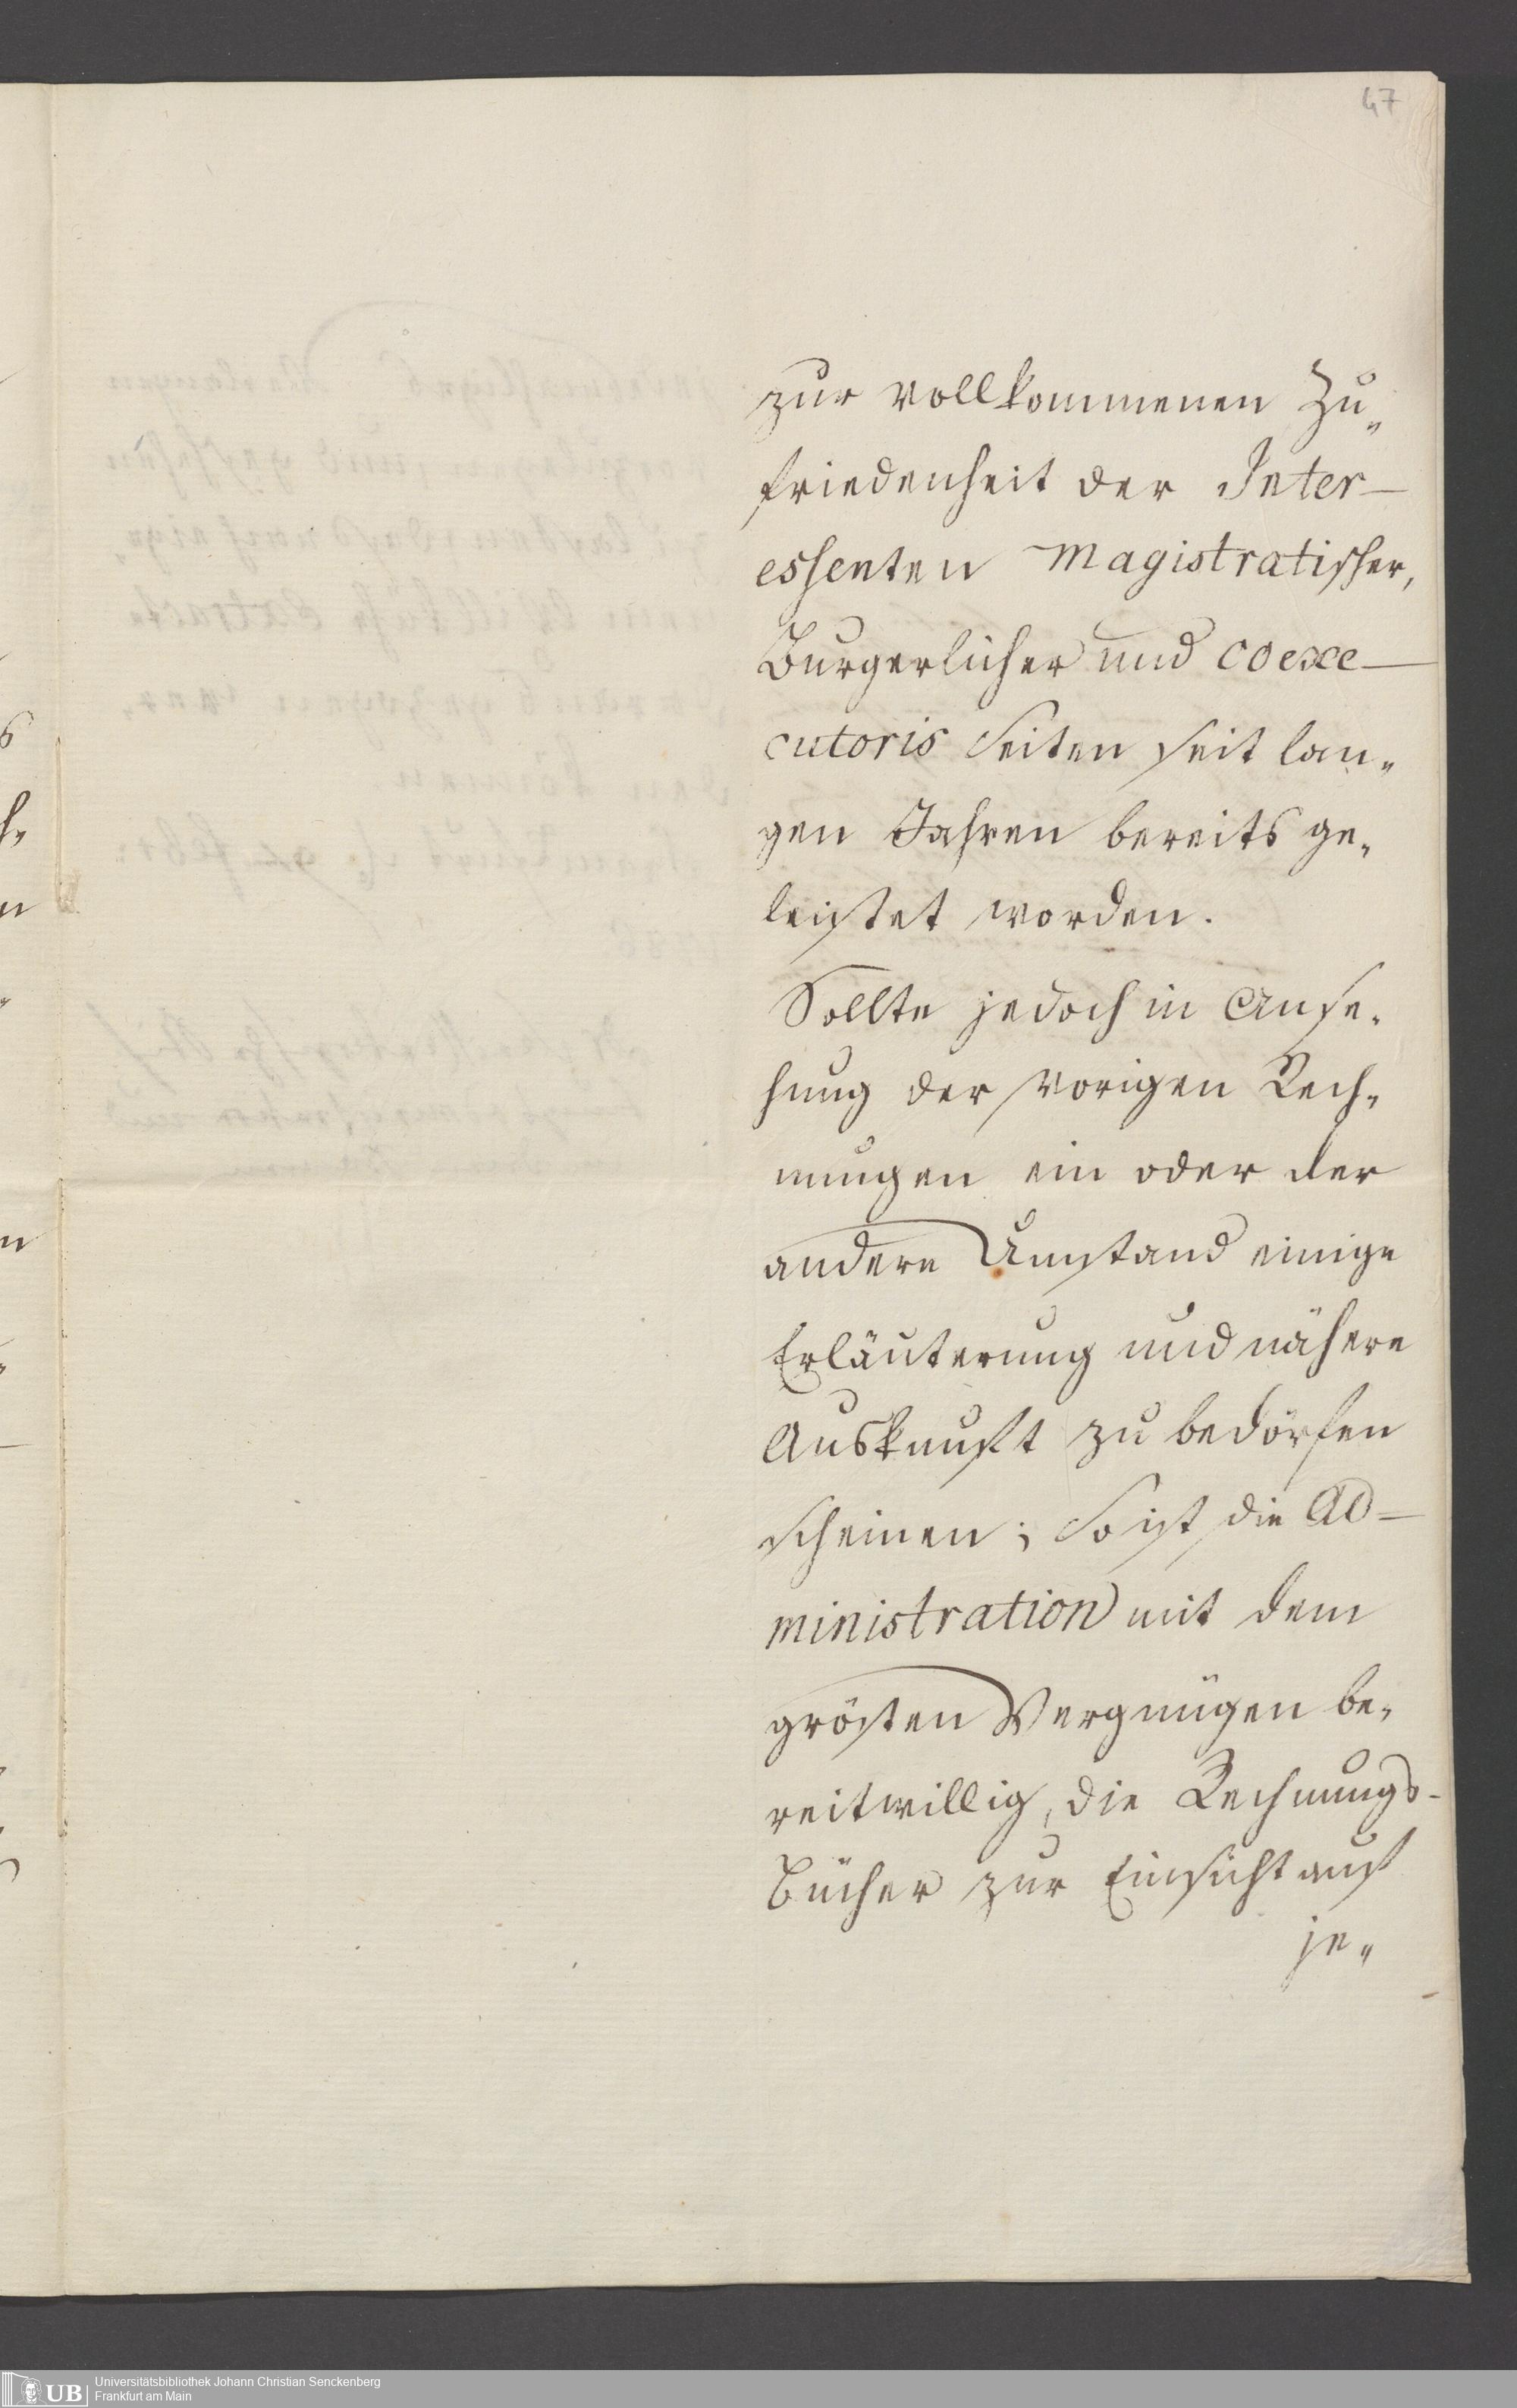 47
zur vollkommenen Zu„
friedenheit der Inter-
essenten Magistratischer,
Burgerlicher und coexe-
cutoris Seiten seit lan„
gen Jahren bereits ge„
leistet worden.
Sollte jedoch in Anse„
hung der vorigen Rech„
nungen ein oder der
andere Umstand einige
Erläuterung und nähere
Auskunft zu bedörfen
scheinen; So ist die Ad-
ministration mit dem
grösten Vergnügen be„
reitwillig, die Rechnungs-
Bücher zur Einsicht auf
je„
UB
Universitätsbibliothek Johann Christian Senckenberg
Frankfurt am Main